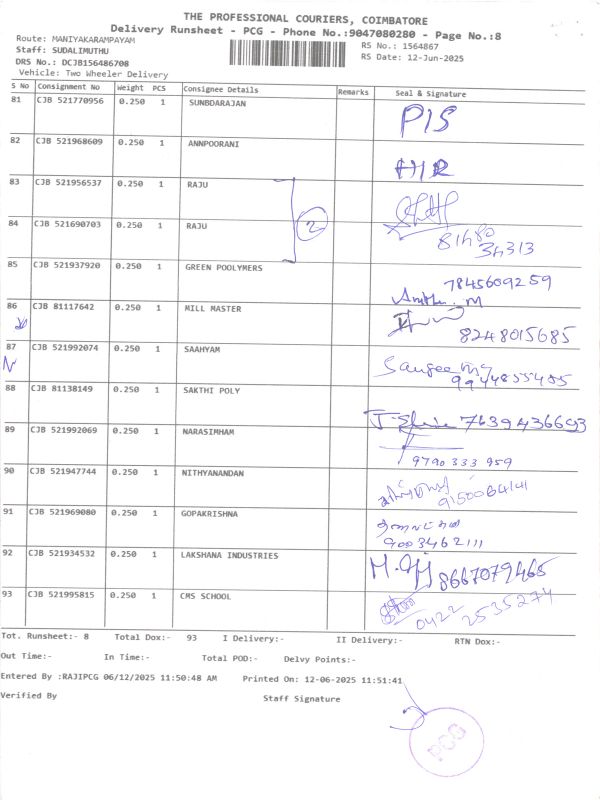 THE PROFESSIONAL COURIERS, COIMBATORE
Delivery Runsheet - PCG - Phone No.:9047080280 - Page No.:8
Route: MANIYAKARAMPAYAM
Staff: SUDALIMUTHU
DRS No.: DCJB156486708
Vehicle: Two Wheeler Delivery
RS No.: 1564867
RS Date: 12-Jun-2025
S No Consignment No Weight PCS Consignee Details Remarks Seal & Signature
81 CJB 521770956 0.250 1 SUNBDARAJAN
82 CJB 521968609 0.250 1 ANNPOORANI
83 CJB 521956537 0.250 1 RAJU
2
84 CJB 521690703 0.250 1 RAJU
34313
85 CJB 521937920 0.250 1 GREEN POOLYMERS 7845609259
86 CJB 81117642 0.250 1 MILL MASTER
8248015685
87 CJB 521992074 0.250 1 SAAHYAM
N
9944855485
88 CJB 81138149 0.250 1 SAKTHI POLY
7639436693
89 CJB 521992069 0.250 1 NARASIMHAM
9790 333 959
90 CJB 521947744 0.250 1 NITHYANANDAN
9150064141
91 CJB 521969080 0.250 1 GOPAKRISHNA
9003462111
92 CJB 521934532 0.250 1 LAKSHANA INDUSTRIES
8667079465
93 CJB 521995815 0.250 1 CMS SCHOOL
0422 2535274
Tot. Runsheet:- 8 Total Dox:- 93 I Delivery:- II Delivery:- RTN Dox:-
Out Time:- In Time:- Total POD:- Delvy Points:-
Entered By :RAJIPCG 06/12/2025 11:50:48 AM Printed On: 12-06-2025 11:51:41
Verified By Staff Signature
PCG